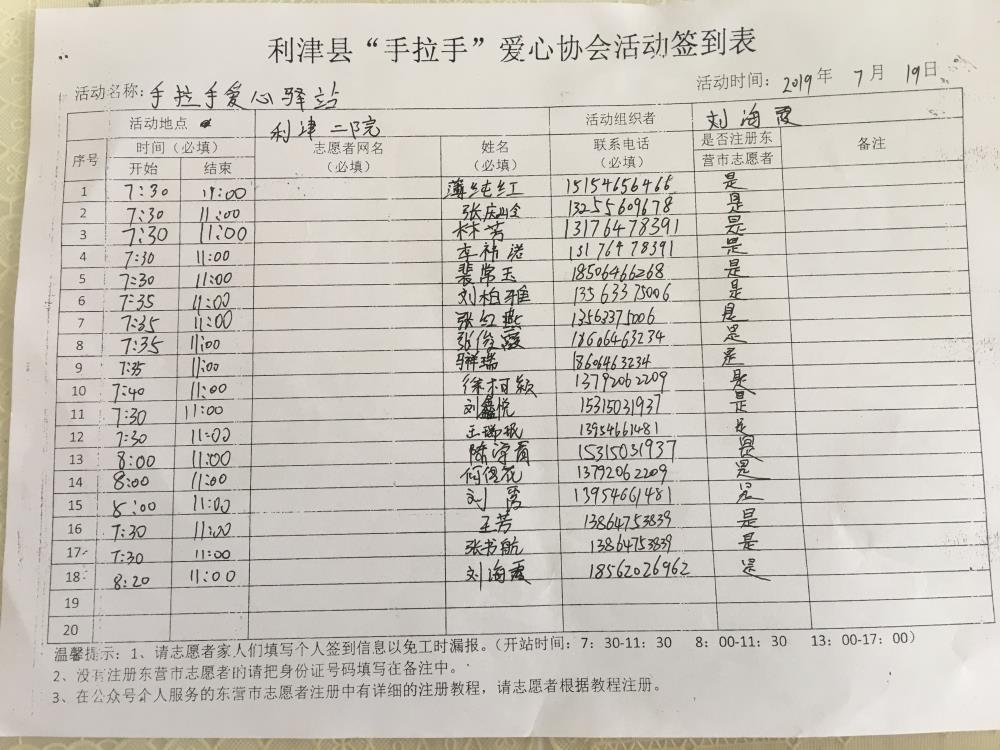 利津县“手拉手”爱心协会活动签到表
活动名称：手拉手爱心驿站 活动时间：2019年 7月 19日
活动地点 利津二院 活动组织者 刘海霞
序号 时间（必填） 志愿者网名（必填） 姓名（必填） 联系电话（必填） 是否注册东营市志愿者 备注
开始 结束
1 7:30 11:00 薄纯红 15154656466 是
2 7:30 11:00 张庆岭 13255609678 是
3 7:30 11:00 林芳 13176478391 是
4 7:30 11:00 李祎诺 13176478391 是
5 7:30 11:00 裴常玉 18506466268 是
6 7:35 11:00 刘柏雅 13563375006 是
7 7:35 11:00 张红燕 13563375006 是
8 7:35 11:00 张俊霞 18606463234 是
9 7:35 11:00 马祥瑞 18606463234 是
10 7:40 11:00 徐柯颖 13792062209 是
11 7:30 11:00 刘鑫悦 15315031937 是
12 7:30 11:00 王瑞珉 13954661481 是
13 8:00 11:00 陈 15315031937 是
14 8:00 11:00 何俊花 13792062209 是
15 8:00 11:00 刘 13954661481 是
16 7:30 11:00 王芳 13864753839 是
17 7:30 11:00 张书航 13864753839 是
18 8:20 11:00 刘海霞 18562026962 是
19
20
温馨提示：1、请志愿者家人们填写个人签到信息以免工时漏报。（开站时间：7：30-11：30 8：00-11：30 13：00-17：00）
2、没有注册东营市志愿者的请把身份证号码填写在备注中。
3、在公众号个人服务的东营市志愿者注册中有详细的注册教程，请志愿者根据教程注册。